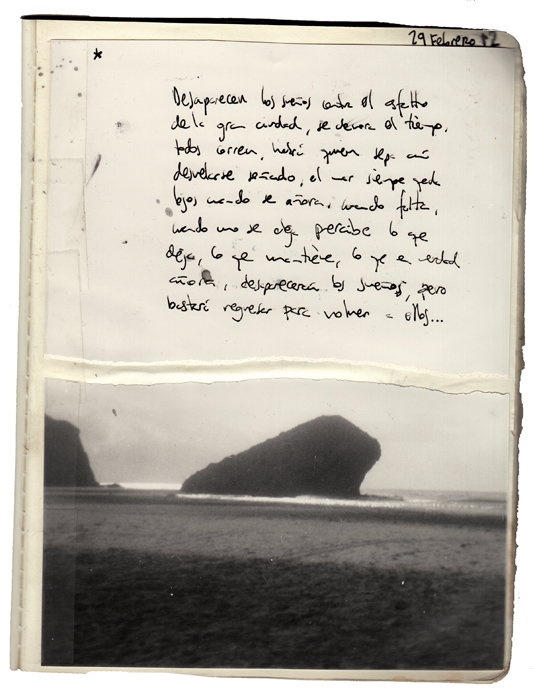 29 Febrero 12
*
Desaparecen los sueños contra el asfalto
de la gran ciudad, se devora el tiempo.
todos corren, habrá quien sepa aún
desvelarse soñado, el mar siempre queda
lejos cuando se añora, cuando falta,
cuando uno se aleja percibe lo que
deja, lo que mantiene, lo que en verdad
añora, desaparecen los sueños, pero
bastará regresar para volver a ellos...